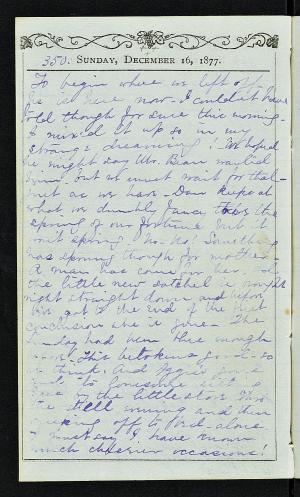 350. SUNDAY, DECEMBER 16, 1877.
To begin where we left off
he is here now. I couldn't have
told though for sure this morning.
I mixed it up so in my
strange dreaming! We hoped
he might say Mr. Bean wanted
him but we must wait for that
just as we have. Dan keeps at
what we dumbly fancy the
spring of our fortune but it
won't spring. No. No! Something
has sprung though for mother.
A man has come for her
the little new satchel is brought
right straight down and before
got to the end of the first
conclusion she is gone. The
Sunday had been this enough
This betokens
think. And
to lonesome sitting
in the little store
still evening and then
creeping off to bed alone
I must say I have known
much cheerier occasions!